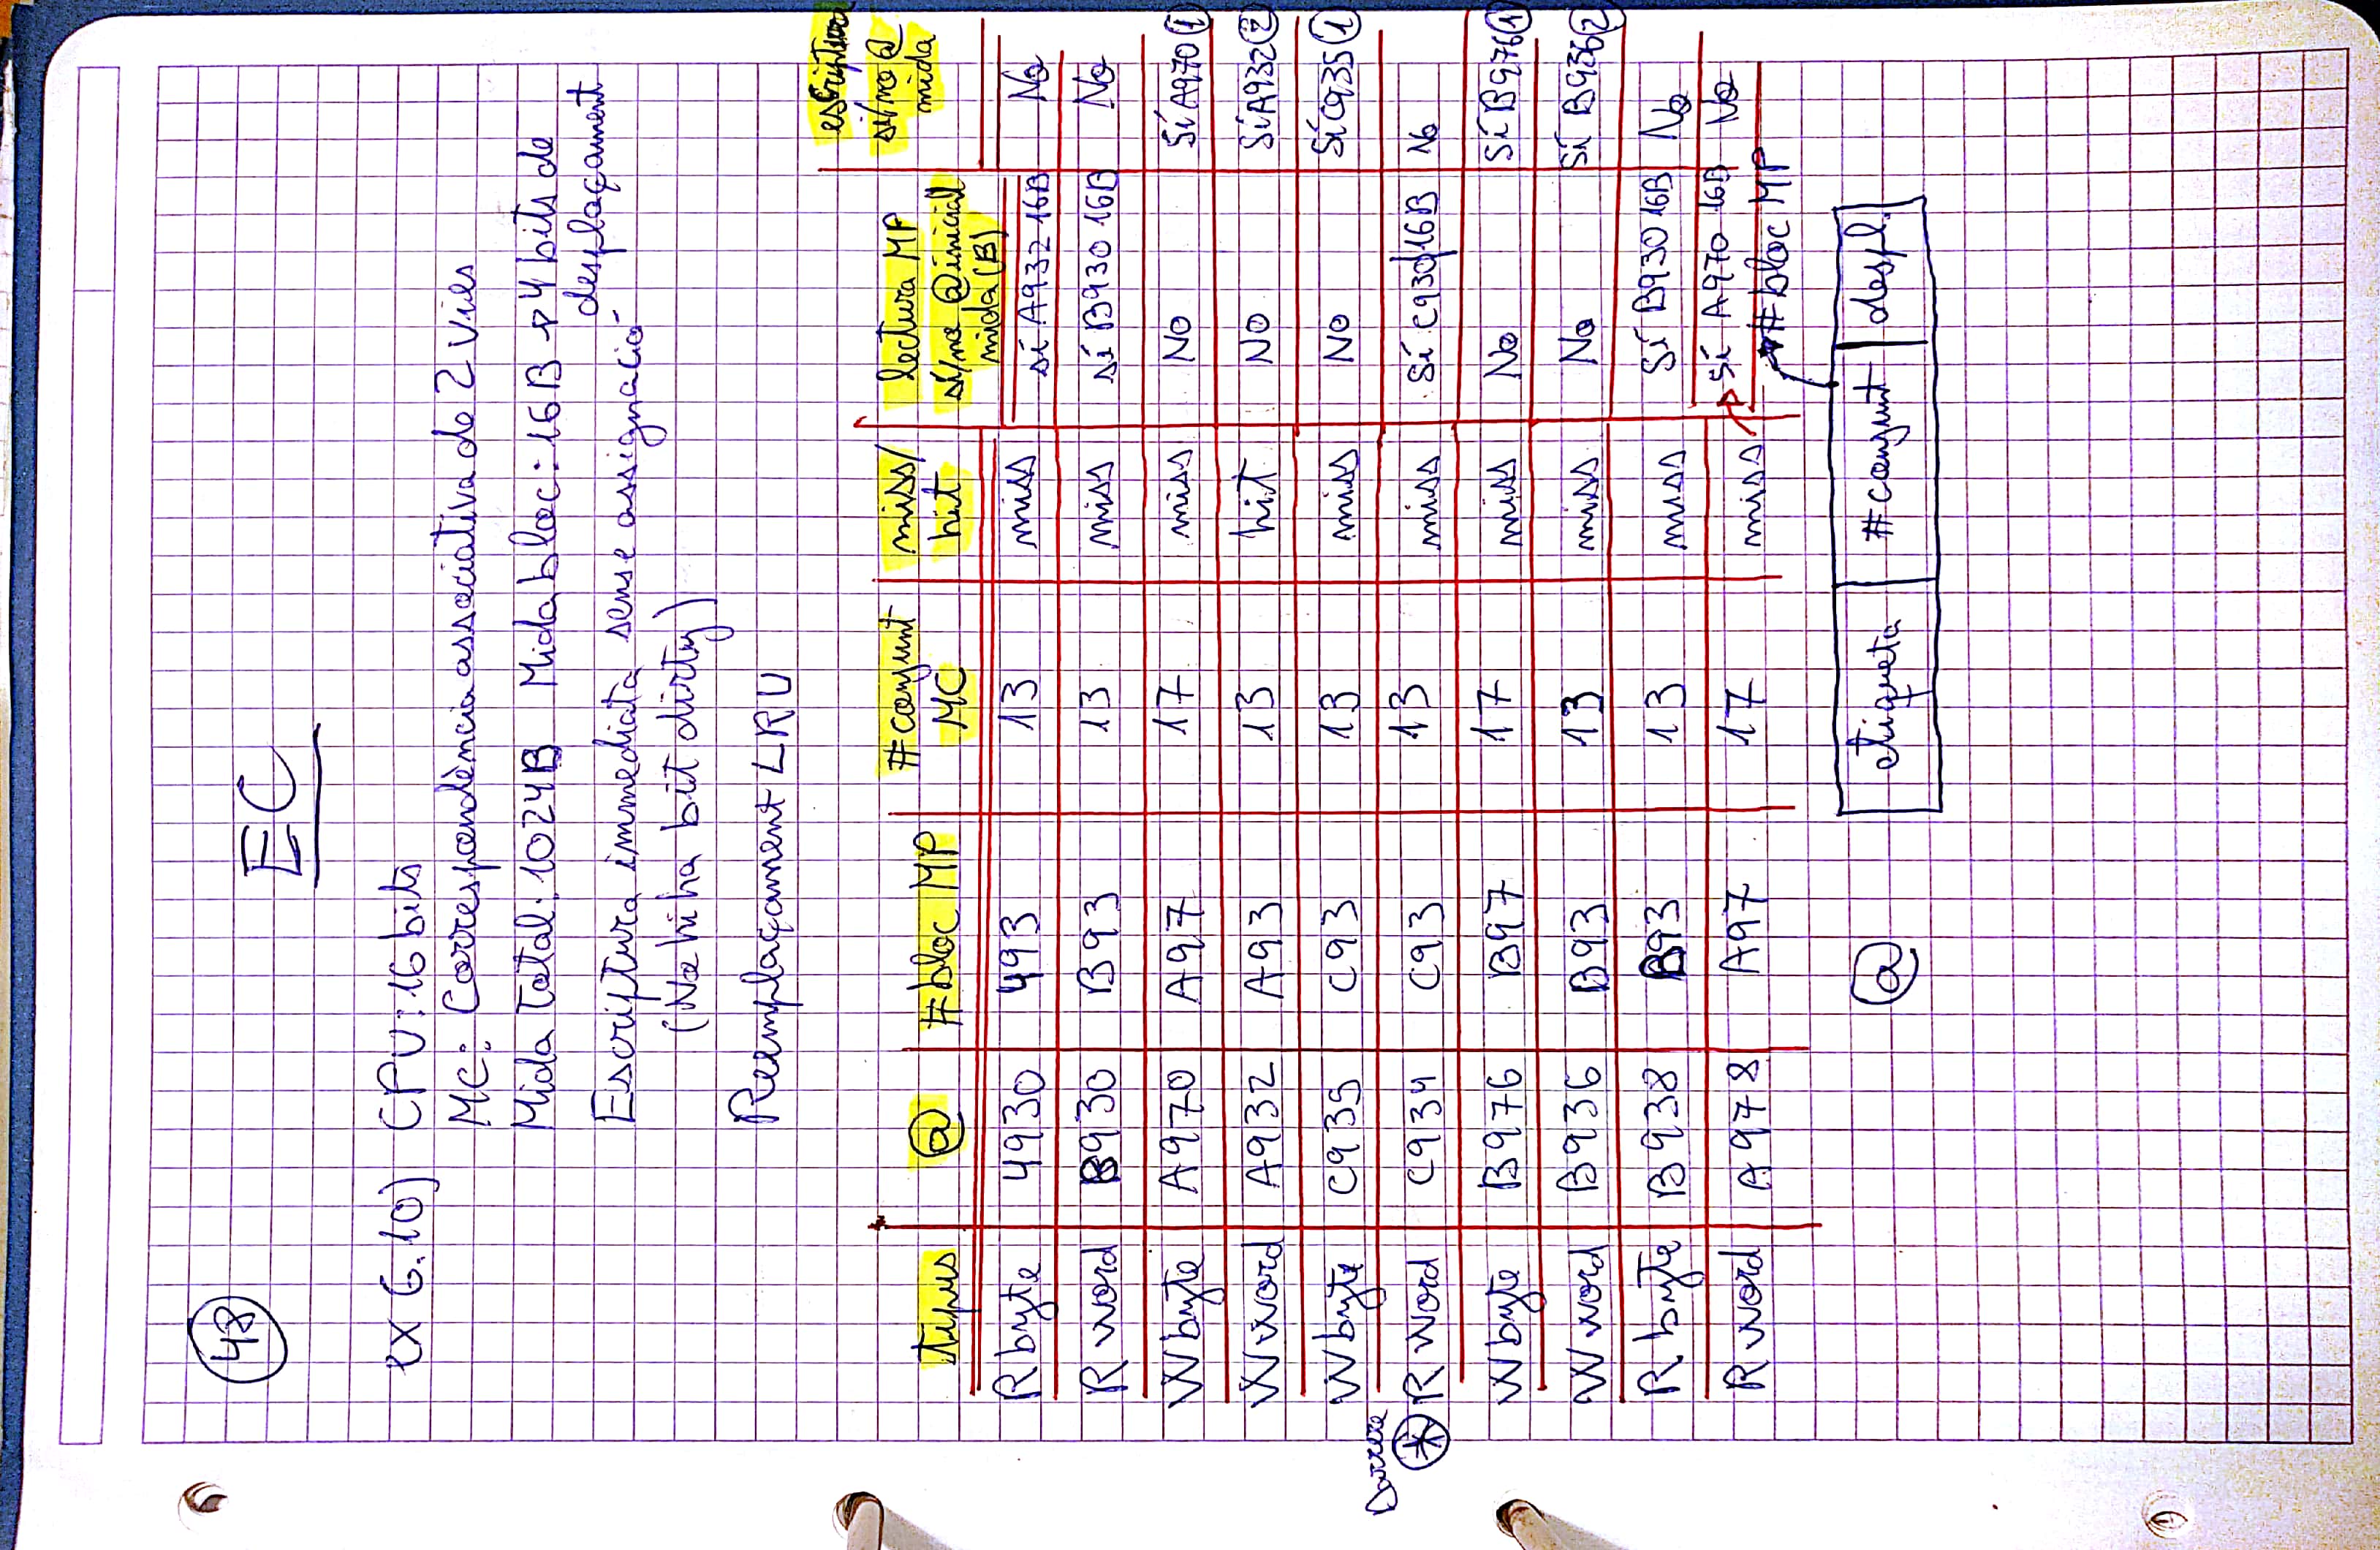 48
EC
ex 6.10) CPU: 16 bits
MC: Correspondència associativa de 2 vies
Mida Total: 1024B Mida bloc: 16B → 4 bits de
desplaçament
Escriptura immediata sense assignació
(No hi ha bit dirty)
Reemplaçament LRU
tipus @ #bloc MP #conjunt MC miss/hit lectura MP sí/no @inicial mida (B) escriptura sí/no @ mida
R byte 4930 493 13 miss sí A932 16B No
R word B930 B93 13 miss sí B930 16B No
W byte A970 A97 17 miss No Sí A970 1
W word A932 A93 13 hit No Sí A932 2
W byte C935 C93 13 miss No Sí C935 1
Darrere
* R Word C934 C93 13 miss Sí C930 16B No
W byte B976 B97 17 miss No Sí B976 1
W word B936 B93 13 miss No Sí B936 2
R byte B938 B93 13 miss Sí B930 16B No
R word A978 A97 17 miss → sí A970 16B No
#bloc MP
@ etiqueta #conjunt despl.